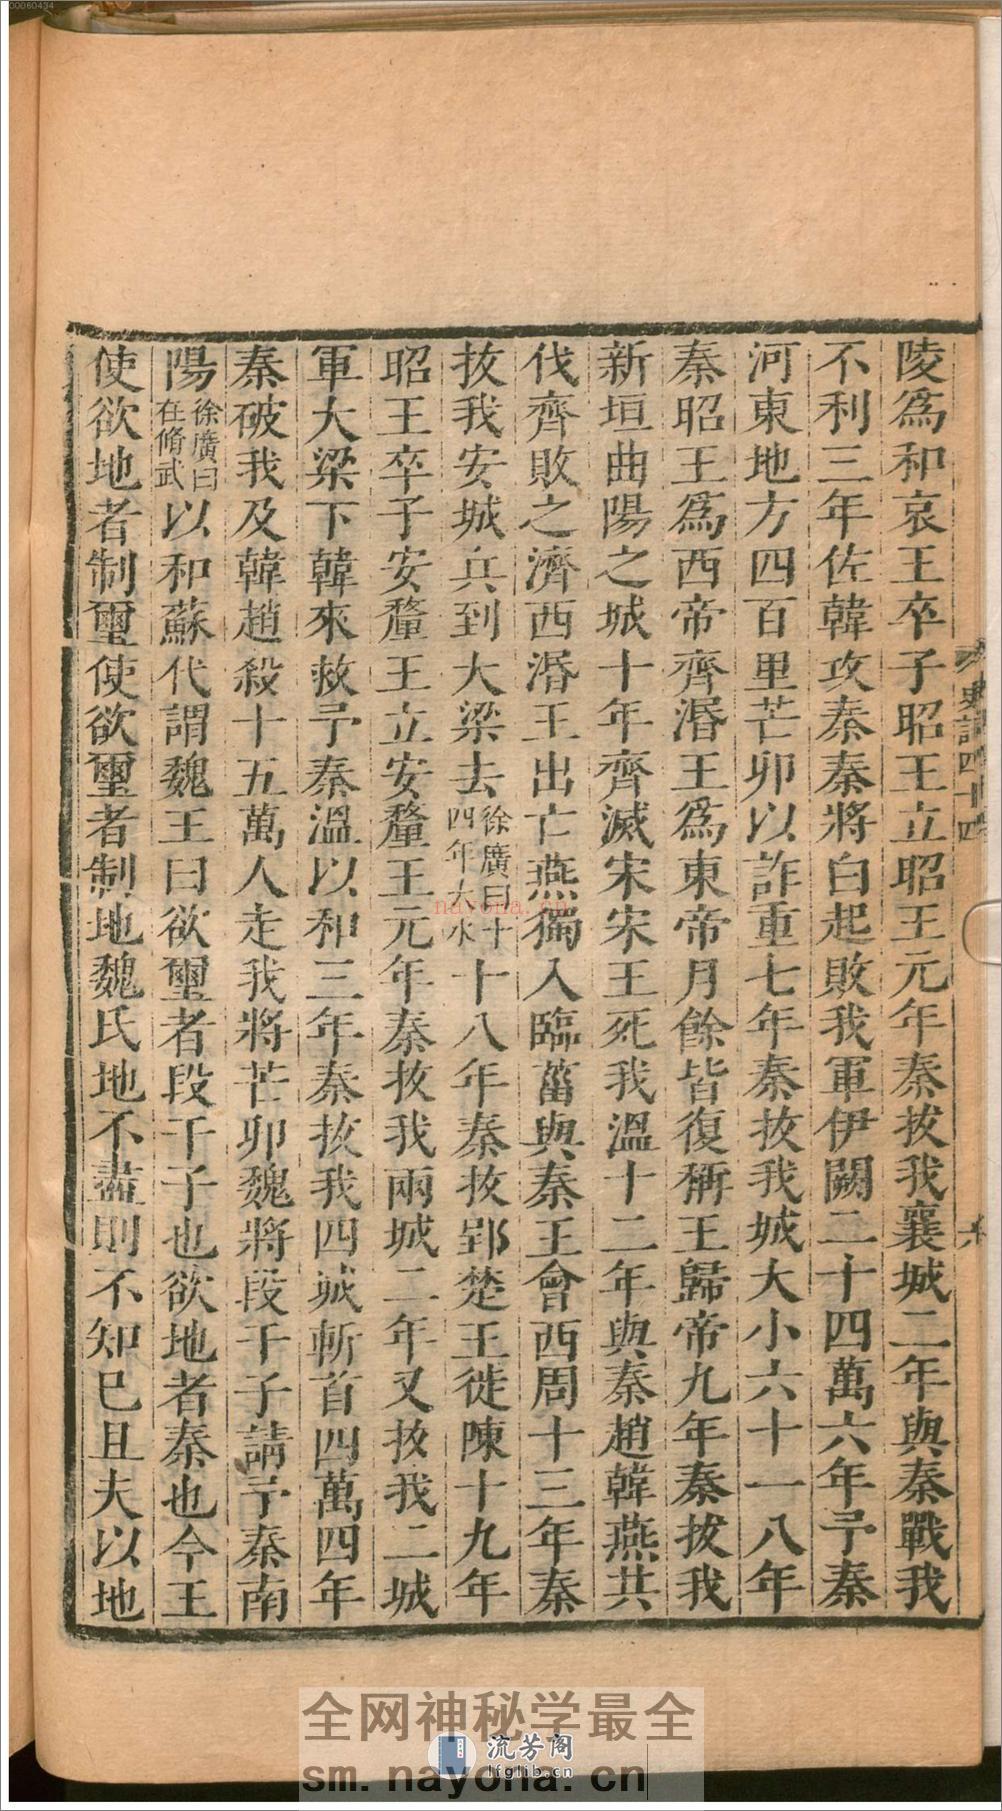 00060434
陵爲和哀王卒子昭王立昭王元年秦拔我襄城二年與秦戰我
不利三年佐韓攻秦秦將白起敗我軍伊闕二十四萬六年予秦
河東地方四百里芒卯以詐重七年秦拔我城大小六十一八年
秦昭王爲西帝齊湣王爲東帝月餘皆復稱王歸帝九年秦拔我
新垣曲陽之城十年齊滅宋宋王死我溫十二年與秦趙韓燕共
伐齊敗之濟西湣王出亡燕獨入臨菑與秦王會西周十三年秦
拔我安城兵到大梁去徐廣曰十四年大水十八年秦拔郢楚王徙陳十九年
昭王卒子安釐王立安釐王元年秦拔我兩城二年又拔我二城
軍大梁下韓來救予秦溫以和三年秦拔我四城斬首四萬四年
秦破我及韓趙殺十五萬人走我將芒卯魏將段干子請予秦南
陽徐廣曰在脩武以和蘇代謂魏王曰欲璽者段干子也欲地者秦也今王
使欲地者制璽使欲璽者制地魏氏地不盡則不知已且夫以地
史記四十四
nayona.cn
全网神秘学最全
流芳阁
lfglib.cn
sm.nayona.cn